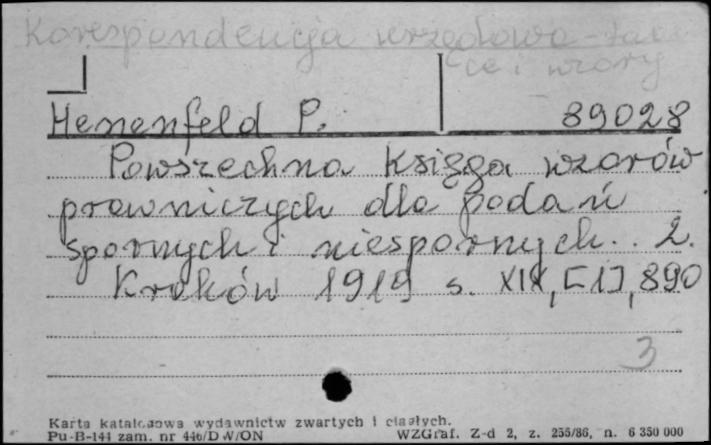 Korespondencja urzędowa -
ce i wzory
Henenfeld P. 89028
Powszechna Księga wzorów
prawniczych dla podań
spornych i niespornych.. 2.
Kraków 1919 s. XIX, [1], 890
3
Karta katalogowa wydawnictw zwartych i ciągłych.
Pu-B-141 zam. nr 446/DW/ON WZGraf. Z-d 2, z. 255/86, n. 6 350 000